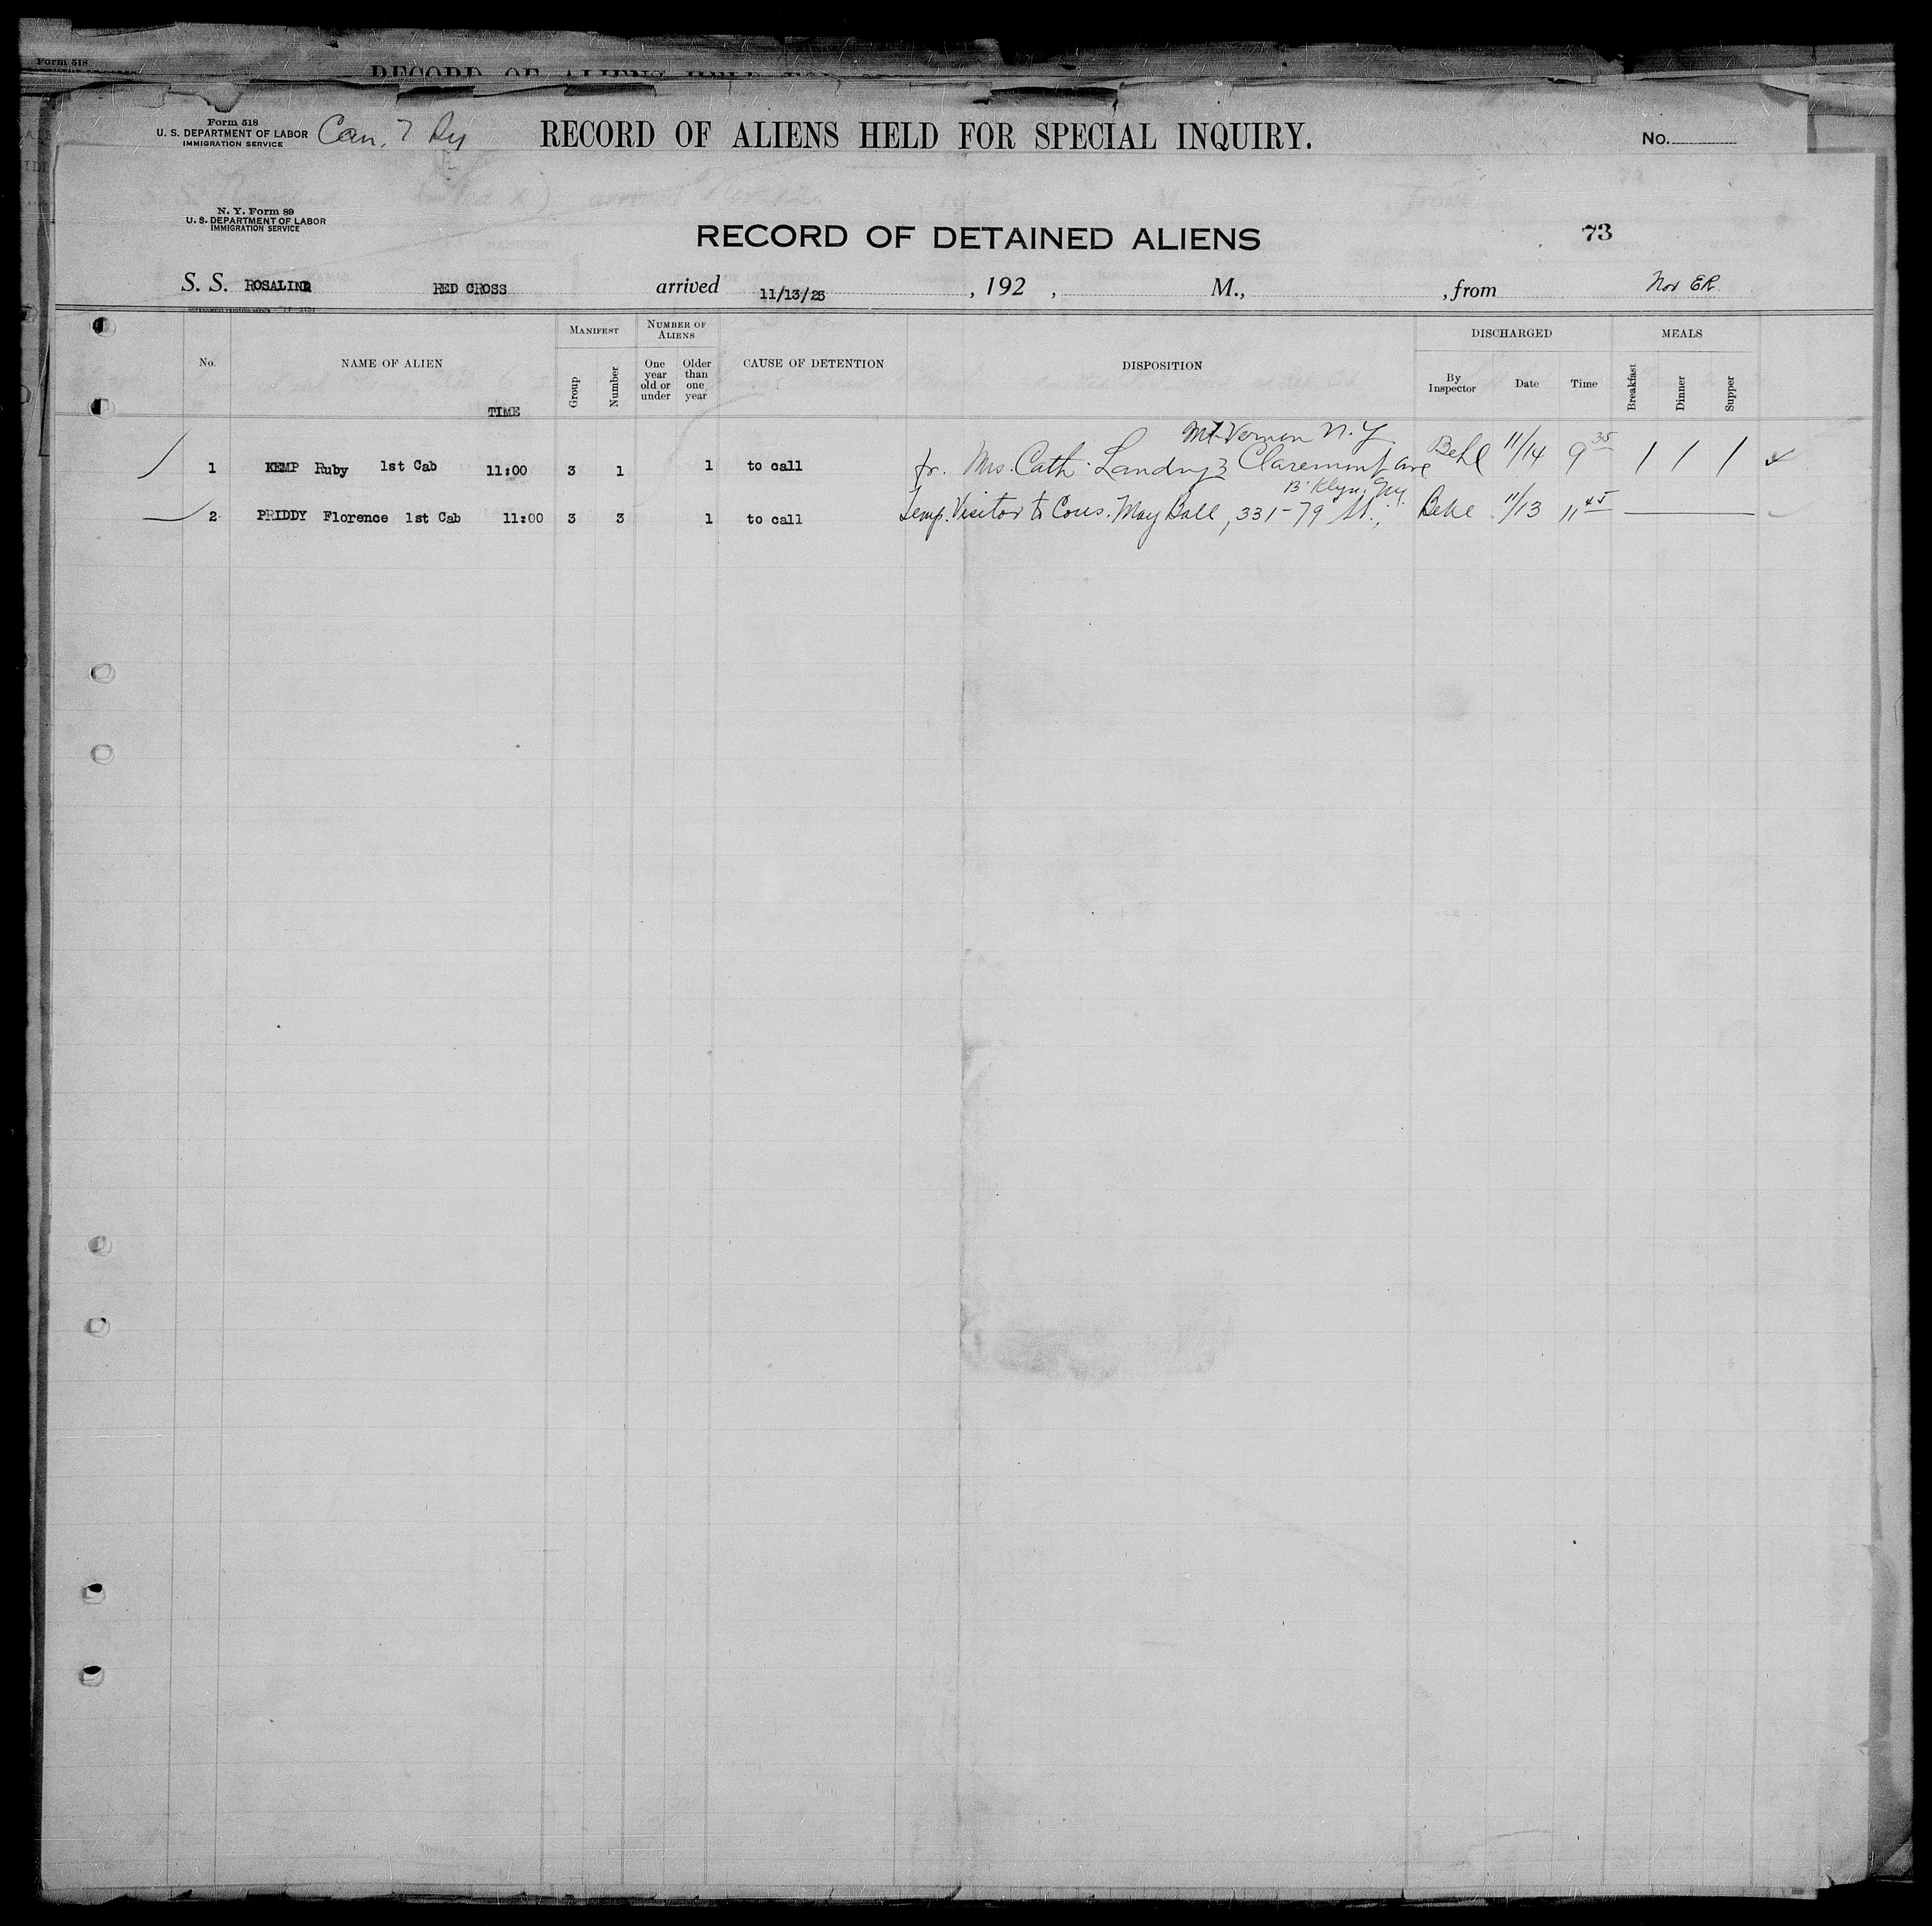 Form 518
RECORD OF ALIENS HELD FOR
Form 518
U. S. DEPARTMENT OF LABOR
IMMIGRATION SERVICE
Can.
RECORD OF ALIENS HELD FOR SPECIAL INQUIRY.
No.
N. Y. Form 89
U. S. DEPARTMENT OF LABOR
IMMIGRATION SERVICE
RECORD OF DETAINED ALIENS
73
S. S. ROSALIND RED CROSS arrived 11/13/25, 192 , M., , from Nov ER.
No. NAME OF ALIEN TIME MANIFEST Group Number NUMBER OF ALIENS One year old or under Older than one year CAUSE OF DETENTION DISPOSITION DISCHARGED By Inspector Date Time MEALS Breakfast Dinner Supper
Mt. Vernon N.Y.
1 KEMP Ruby 1st Cab 11:00 3 1 1 to call fr. Mrs. Cath. Landry 3 Claremont ave Behl 11/14 9 35 1 1 1
B'klyn, NY.
2 PRIDDY Florence 1st Cab 11:00 3 3 1 to call Temp. Visitor to Cous. May Ball, 331-79 St., Behl 11/13 11 45